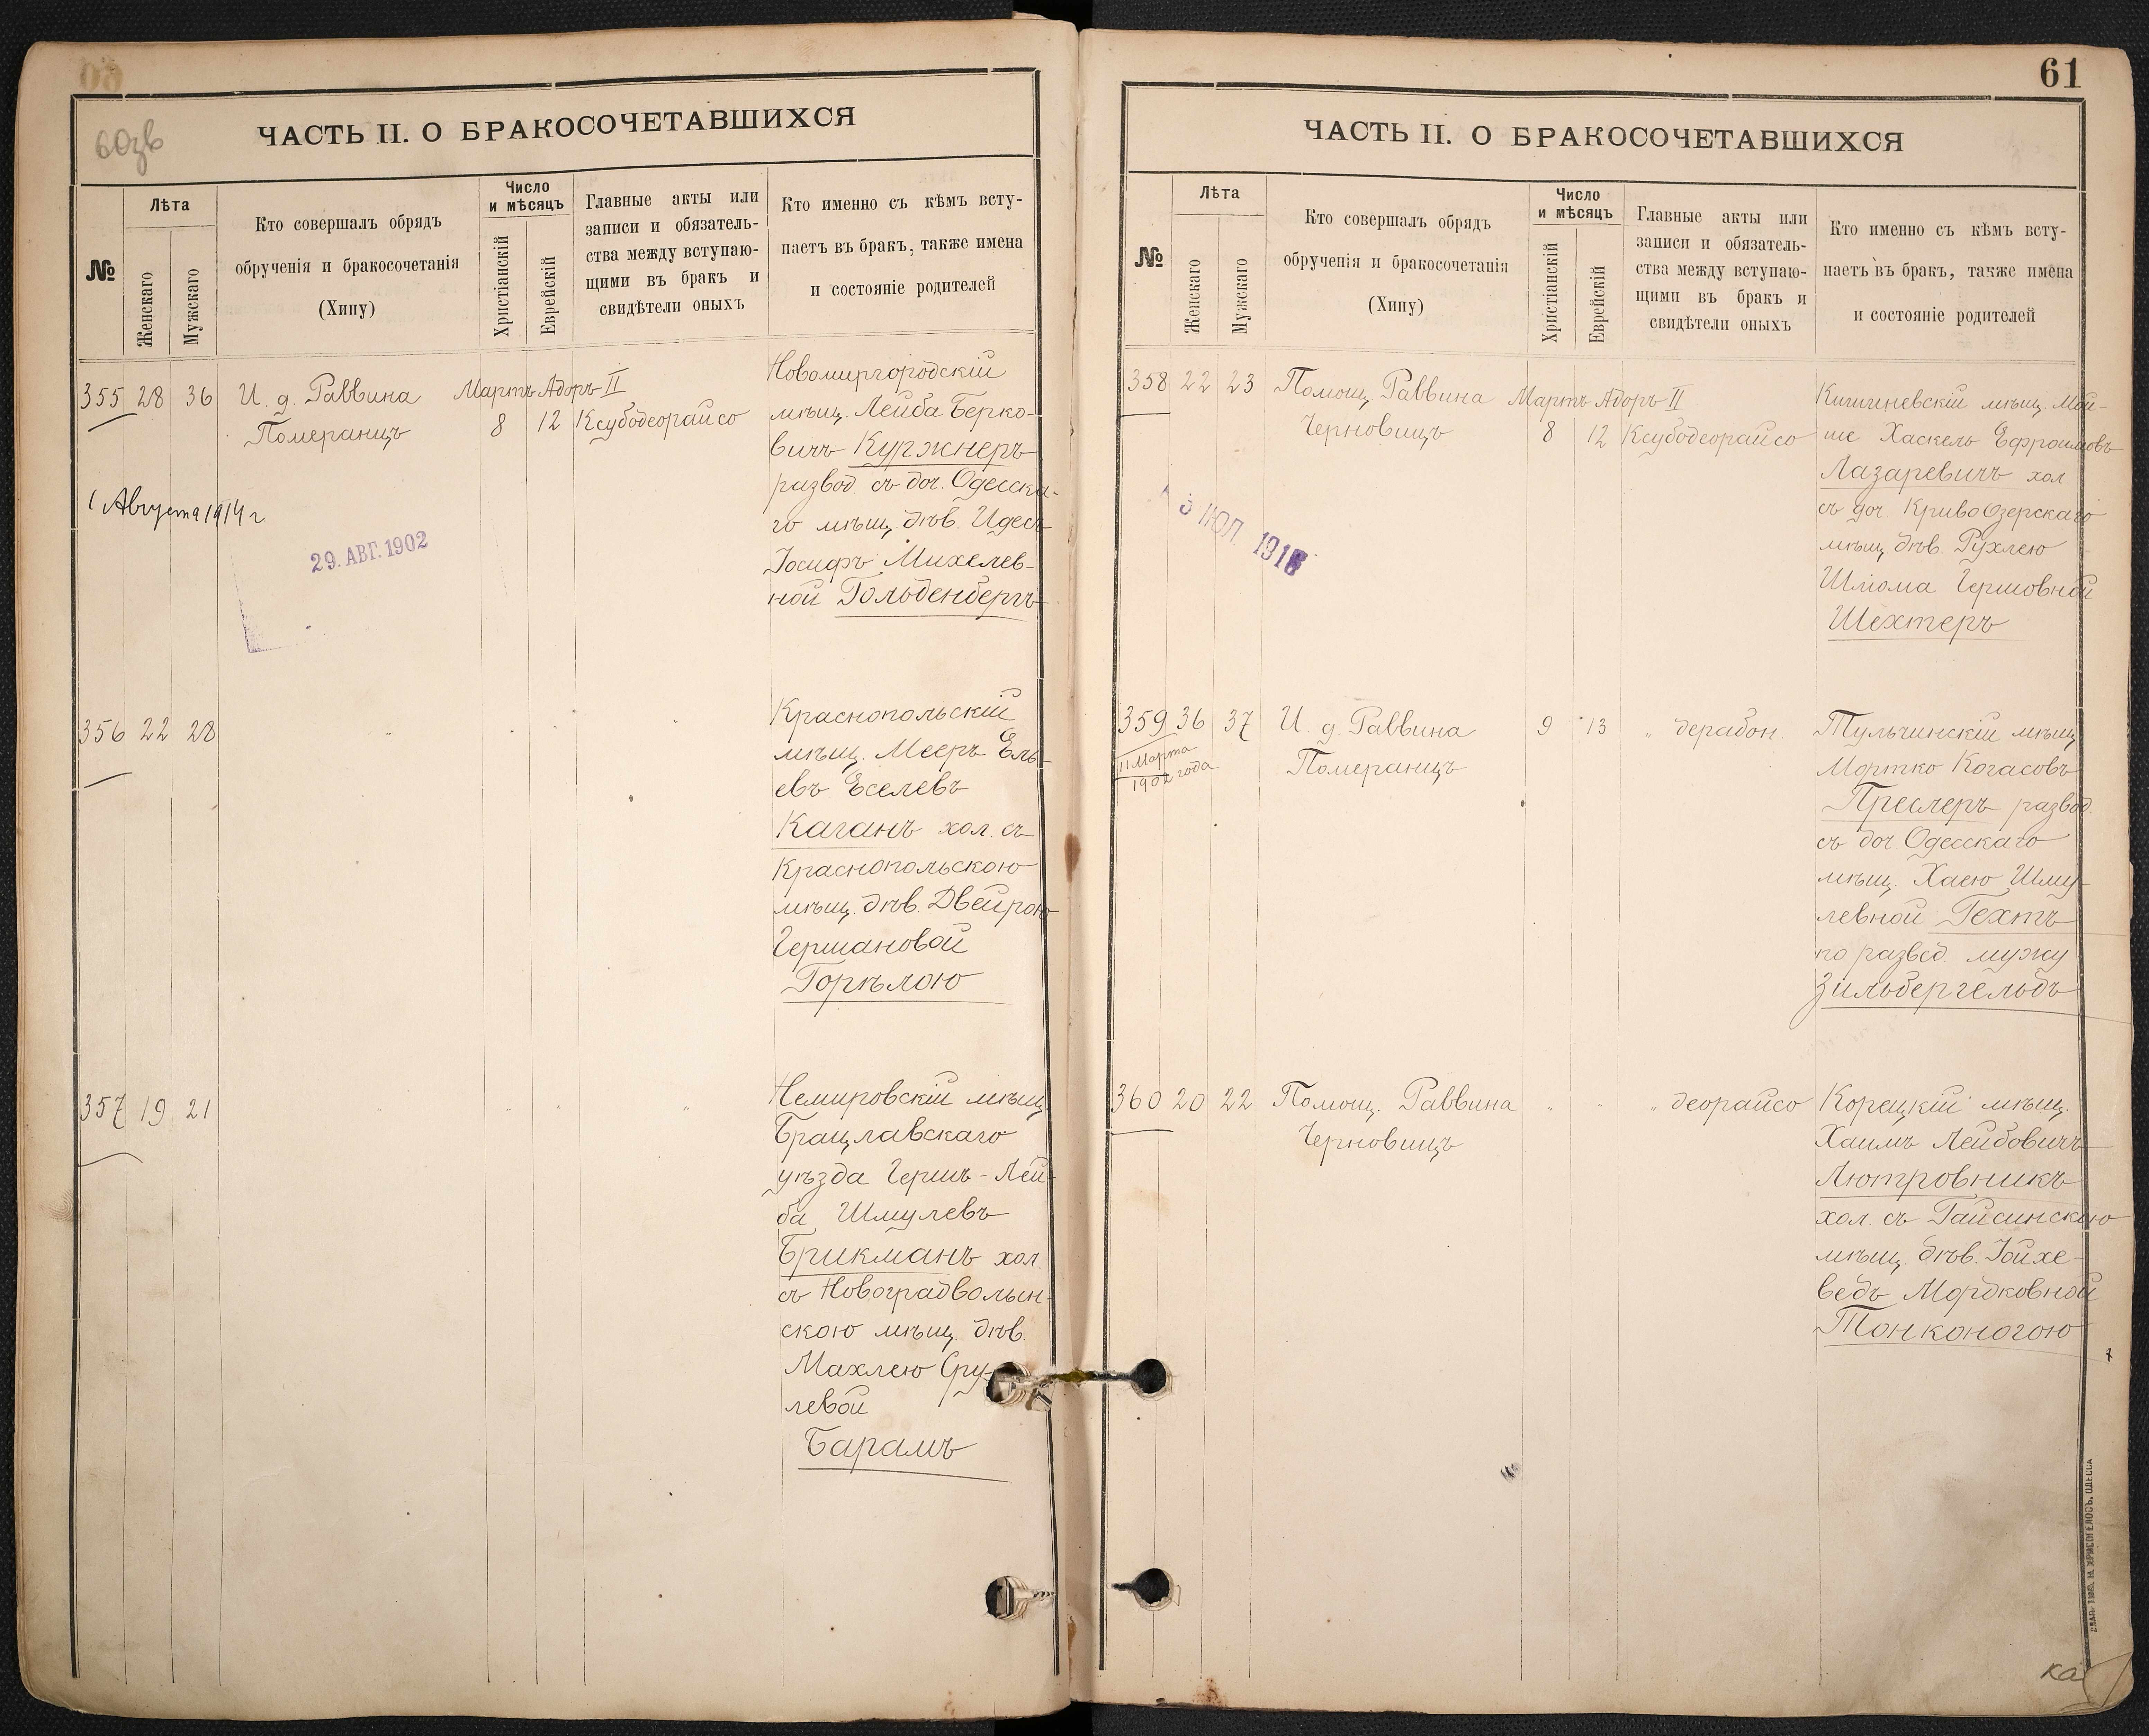 60зв
ЧАСТЬ II. О БРАКОСОЧЕТАВШИХСЯ
№
Лѣта
Женскаго
Мужскаго
Кто совершалъ обрядъ
обрученія и бракосочетанія
(Хипу)
Число
и мѣсяцъ
Христіанскій
Еврейскій
Главные акты или
записи и обязатель-
ства между вступаю-
щими въ бракъ и
свидѣтели оныхъ
Кто именно съ кѣмъ всту-
паетъ въ бракъ, также имена
и состояніе родителей
355 28 36 И. д. Раввина Мартъ Адоръ II
Померанцъ 8 12 Ксубодеорайсо
Новомиргородскій
мѣщ. Лейба Берко-
вичъ Куржнеръ
развод. съ доч. Одесска-
го мѣщ. дѣв. Идесъ
Іосифъ Михелев-
ной Гольденбергъ
1 Августа 1914 г
29. АВГ. 1902
356 22 28 " " " "
Краснопольскій
мѣщ. Мееръ Ель-
евъ Еселевъ
Каганъ хол. съ
Краснопольскою
мѣщ. дѣв. Двейрою
Гершановой
Горѣлою
357 19 21 " " " "
Немировскій мѣщ.
Брацлавскаго
уѣзда Гершъ-Лей-
ба Шмулевъ
Брикманъ хол.
съ Новоградволын-
скою мѣщ. дѣв.
Махлею Сру-
левой
Барамъ
61
ЧАСТЬ II. О БРАКОСОЧЕТАВШИХСЯ
№
Лѣта
Женскаго
Мужскаго
Кто совершалъ обрядъ
обрученія и бракосочетанія
(Хипу)
Число
и мѣсяцъ
Христіанскій
Еврейскій
Главные акты или
записи и обязатель-
ства между вступаю-
щими въ бракъ и
свидѣтели оныхъ
Кто именно съ кѣмъ всту-
паетъ въ бракъ, также имена
и состояніе родителей
358 22 23 Помощ. Раввина Мартъ Адоръ II
Черновицъ 8 12 Ксубодеорайсо
Кишиневскій мѣщ. Мой-
ше Хаскель Ефроимовъ
Лазаревичъ хол.
съ доч. КривоОзерскаго
мѣщ. дѣв. Рухлею
Шлома Гершовной
Шехтеръ
3 ІЮЛ
359 36 37 И. д. Раввина 9 13 " дерабон.
Померанцъ
11 Марта
1902 года
Тульчинскій мѣщ.
Мортко Когасовъ
Преслеръ развод.
съ доч. Одесскаго
мѣщ. Хаею Шму-
левной Гехтъ
по развед. мужу
Зильбергельдъ
360 20 22 Помощ. Раввина " " " деорайсо
Черновицъ
Корецкій мѣщ.
Хаимъ Лейбовичъ
Лютровникъ
хол. съ Гайсинскою
мѣщ. дѣв. Іойхе-
ведъ Мордковной
Тонконогою
ка